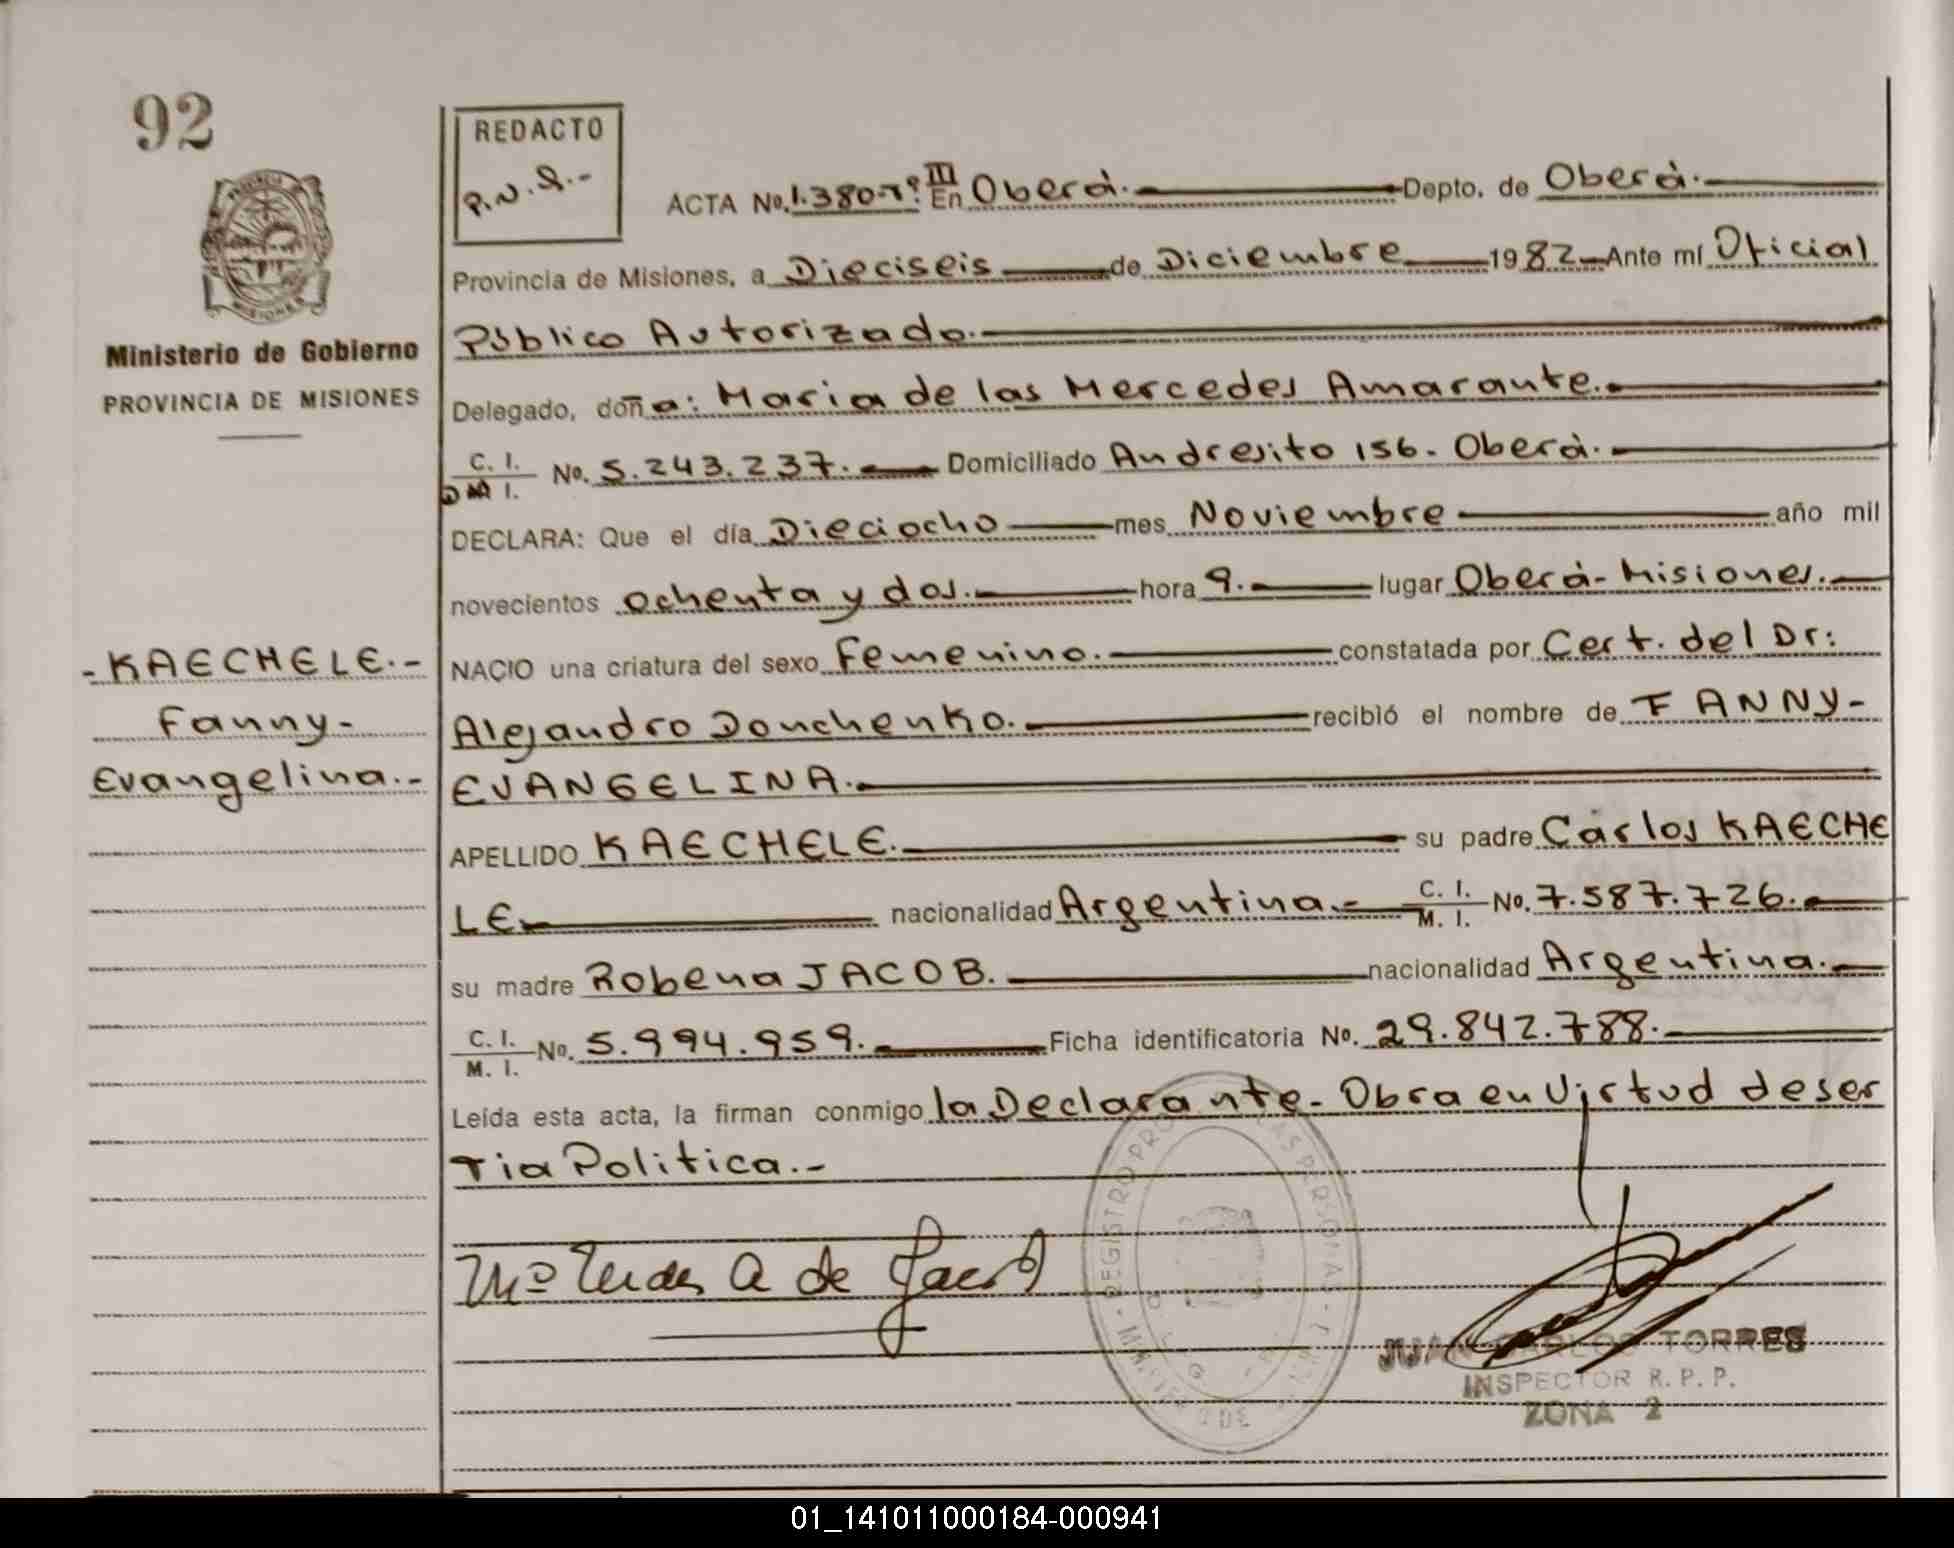 92
REDACTO
P.N.S.-
ACTA No. 1.380-Tº III En Oberá. Depto. de Oberá.
Provincia de Misiones, a Dieciseis de Diciembre 1982 Ante mí Oficial
Público Autorizado.
Delegado, doña: Maria de las Mercedes Amarante.
C. I.
D M I. No. 5.243.237. Domiciliado Andresito 156. Oberá.
DECLARA: Que el día Dieciocho mes Noviembre año mil
novecientos ochenta y dos. hora 9. lugar Oberá-Misiones.
NACIO una criatura del sexo Femenino. constatada por Cert. del Dr:
Alejandro Donchenko. recibió el nombre de FANNY-
EVANGELINA.
APELLIDO KAECHELE. su padre Carlos KAECHE
LE nacionalidad Argentina.- C. I. M. I. No. 7.587.726.
su madre Robena JACOB. nacionalidad Argentina.
C. I. M. I. No. 5.994.959. Ficha identificatoria No. 29.842.788.
Leída esta acta, la firman conmigo la Declarante. Obra en Virtud de ser
Tia Politica.-
Mª A de Jacob
JUAN CARLOS TORRES
INSPECTOR R. P. P.
ZONA 2
PROVINCIA DE
MISIONES
Ministerio de Gobierno
PROVINCIA DE MISIONES
-KAECHELE.-
Fanny-
Evangelina.-
01_141011000184-000941